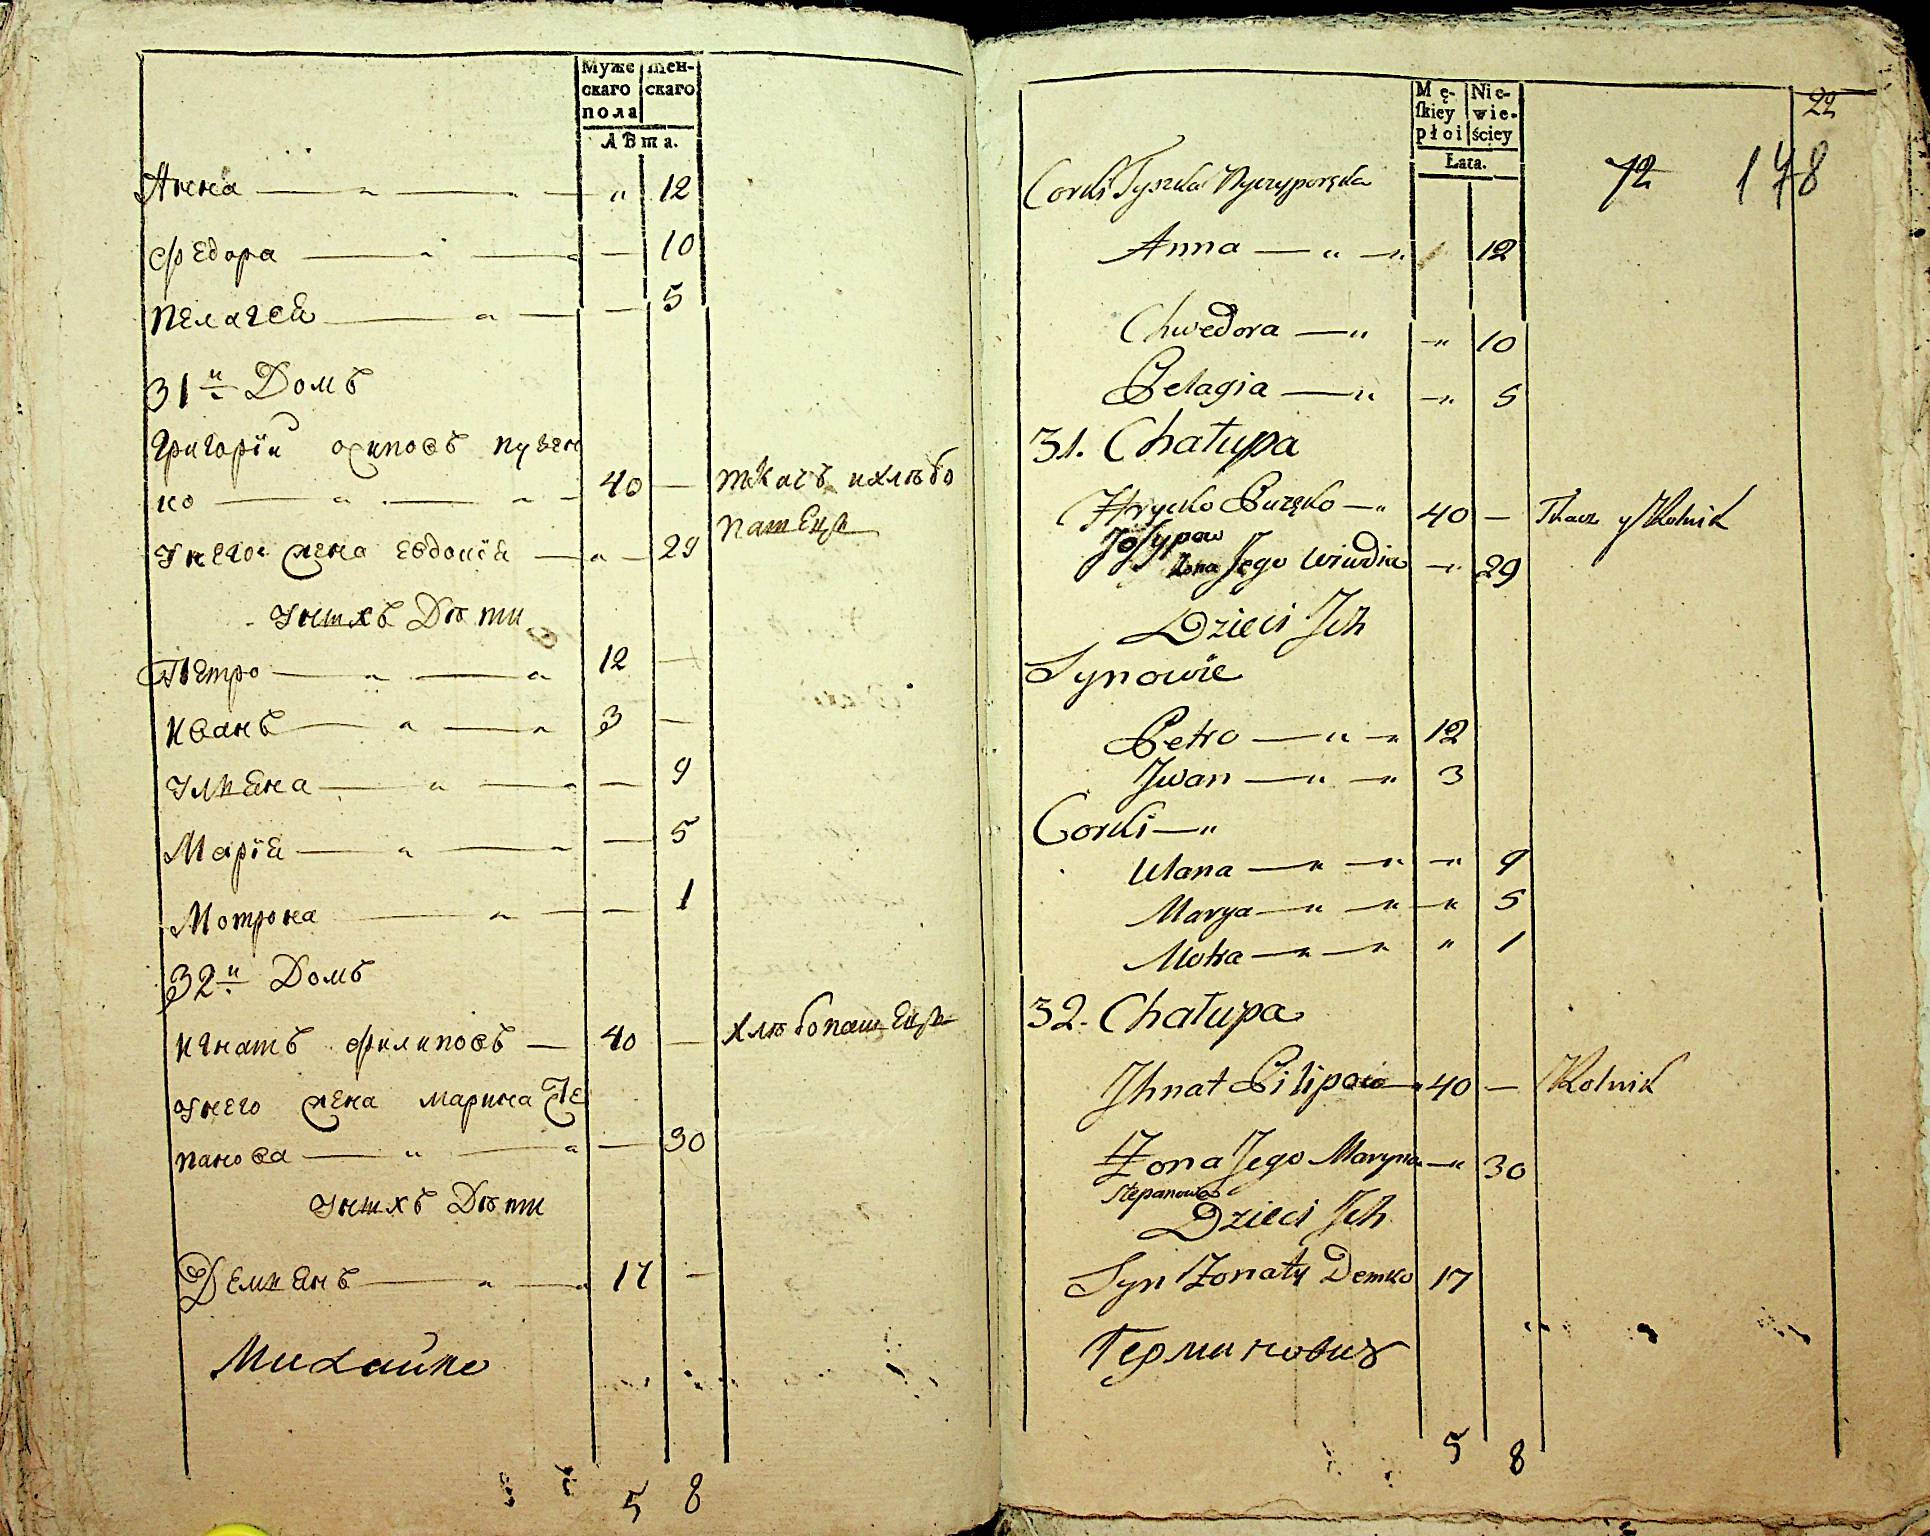 Муже
скаго
пола
шен-
скаго
лѣта.
Анна — „ — „ 12
Федора — „ — — 10
Пелагея — „ — — 5
31й Домъ
Григорїи Осиповъ Пузен
ко — „ — „ - 40 — ткачъ и хлѣбо
пашецъ
У него жена Евдокїя — „ — 29
У нихъ Дѣти
Петро — „ — „ 12 —
Иванъ — „ — „ 3 —
Ульяна — „ — „ — 9
Марїя — „ — „ — 5
Мотрона — „ — — 1
32й Домъ
Игнатъ Филиповъ — 40 — хлѣбопашецъ
У него жена Марина Сте
панова — „ — „ — 30
У нихъ Дѣти
Демьянъ — „ — „ 17 —
Михайло
5 8
Mę-
skiey
płoi
Nie-
wie-
ściey
Łata.
22
72 178
Corki Tyszka Nyczyporęka
Anna — „ — „ 12
Chwedora — „ — „ 10
Pelagia — „ — „ 5
31. Chałupa
Hrycko Puzęko — „ 40 — Tkacz y Rolnik
Josypow
Zona Jego Wiwdia — „ 29
Dzieci Jch
Synowie
Petro — „ — „ 12
Jwan — „ — „ 3
Corki — „
Ulana — „ — „ — „ 9
Marya — „ — „ — „ 5
Motra — „ — „ „ 1
32. Chałupa
Jhnat Pilipow — 40 — Rolnik
Zona Jego Maryna — „ 30
Stepanowa
Dzieci Jch
Syn Zonaty Demko 17
Герминовиз
5 8